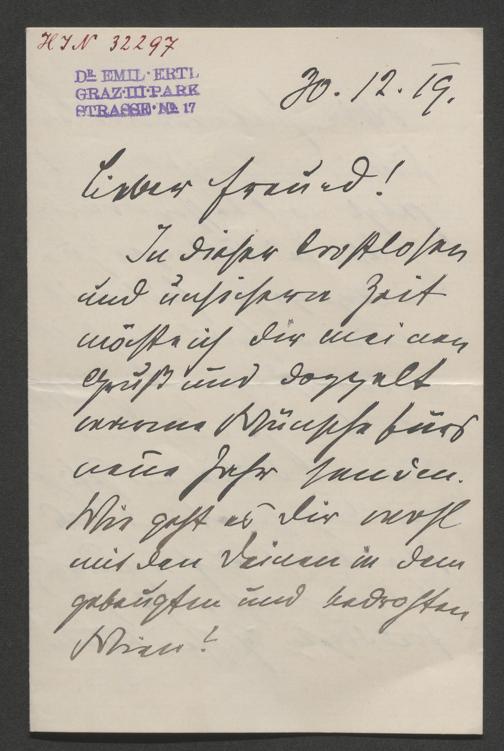 HIN 32297
DR. EMIL·ERTL
GRAZ·III·PARK
STRASSE·No. 17
30. 12. 19.
Lieber Freund!
In dieser trostlosen
und unsichern Zeit
möchte ich Dir meinen
Gruß und doppelt
warme Wünsche fürs
neue Jahr senden.
Wie geht es Dir wohl
mit den Deinen in dem
gebeugten und bedrohten
Wien!